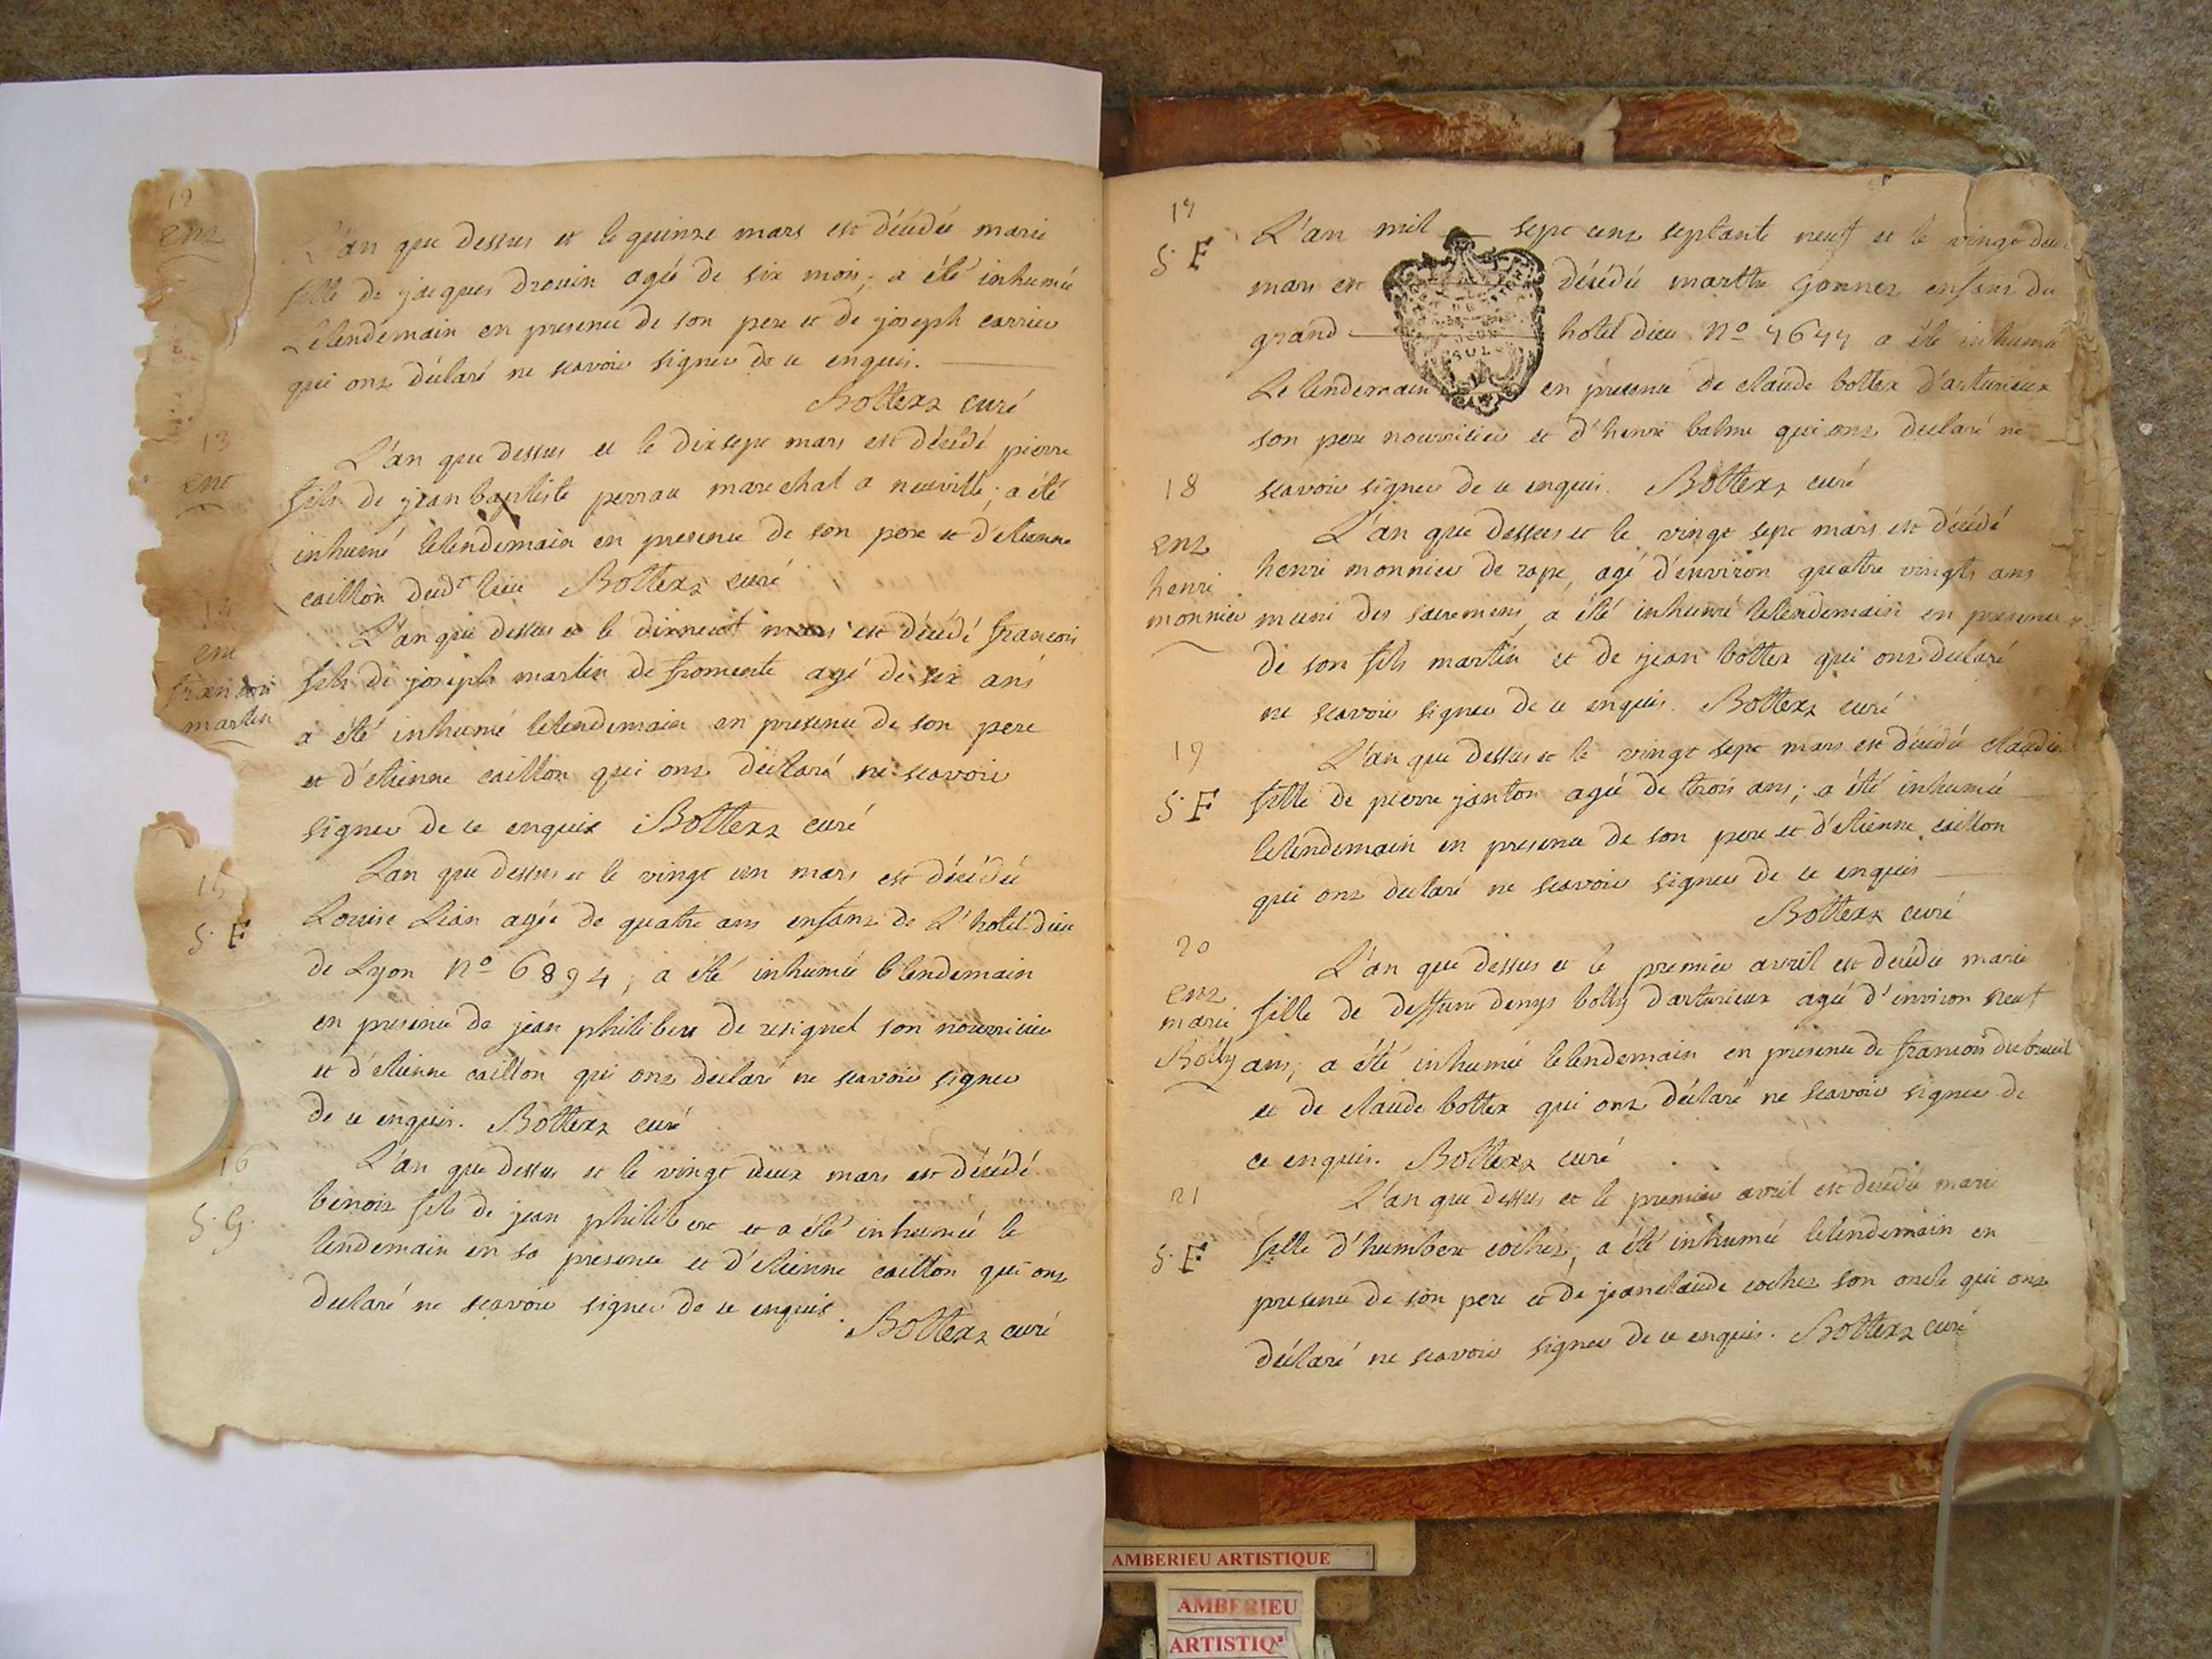 12
ent
L'an que dessus et le quinze mars est décédée marie
fille de jacques drouin agée de six mois; a été inhumée
Lelendemain en presence de son pere et de joseph carrier
qui ont déclaré ne scavoir signer de ce enquis.
Bottexx curé
13
ent
L'an que dessus et le dixsept mars est décédé pierre
fils de jean baptiste perrau marechal a neuville; a été
inhumé lelendemain en presence de son pere et d'etienne
caillon dudt lieu Bottexx curé
14
ent
francois
martin
L'an que dessus et le dixneuf mars est décédé francois
fils de joseph martin de fromente agé de six ans
a été inhumé lelendemain en presence de son pere
et d'etienne caillon qui ont déclaré ne scavoir
signer de ce enquis Bottexx curé
15
S. F
Lan que dessus et le vingt un mars est décédée
Louise Lian agée de quatre ans enfant de L'hotel-dieu
de Lyon No 6894; a été inhumée lelendemain
en presence de jean philibert de resignel son nourricier
et d'etienne caillon qui ont declaré ne scavoir signer
de ce enquis. Bottexx curé
16
S. G.
L'an que dessus et le vingt deux mars est décédé
benoit fils de jean philibert et a été inhumée le
lendemain en sa presence et d'etienne caillon qui ont
declaré ne scavoir signer de ce enquis.
Bottexx curé
17
S. F
L'an mil sept cent septante neuf et le vingt deux
mars est décédée marthe Gonnet enfant du
grand hotel dieu No 4644 a été inhumée
Le lendemain en presence de claude bottex d'arturieux
son pere nourricier et d'henri balme qui ont declaré ne
scavoir signer de ce enquis. Bottexx curé
18
ent
henri
monnier
L'an que dessus et le vingt sept mars est décédé
henri monnier de rape, agé d'environ quattre vingts ans
muni des sacremens, a été inhumé lelendemain en presence
de son fils martin et de jean bottex qui ont declaré
ne scavoir signer de ce enquis. Bottexx curé
19
S. F
L'an que dessus et le vingt sept mars est décédée claudine
fille de pierre janton agée de trois ans; a été inhumée
lelendemain en presence de son pere et d'etienne caillon
qui ont declaré ne scavoir signer de ce enquis
Bottexx curé
20
ent
marie
Bolly
L'an que dessus et le premier avril est decédée marie
fille de deffunt denys bolly d'arturieux agée d'environ neuf
ans; a été inhumée lelendemain en presence de francois dubreuil
et de claude bottex qui ont déclaré ne scavoir signer de
ce enquis. Bottexx curé
21
S. F
L'an que dessus et le premier avril est decédée marie
fille d'humbert cochet; a été inhumée lelendemain en
presence de son pere et de jeanclaude cochet son oncle qui ont
déclaré ne scavoir signer de ce enquis. Bottexx curé
AMBERIEU ARTISTIQUE
AMBERIEU
ARTISTIQ